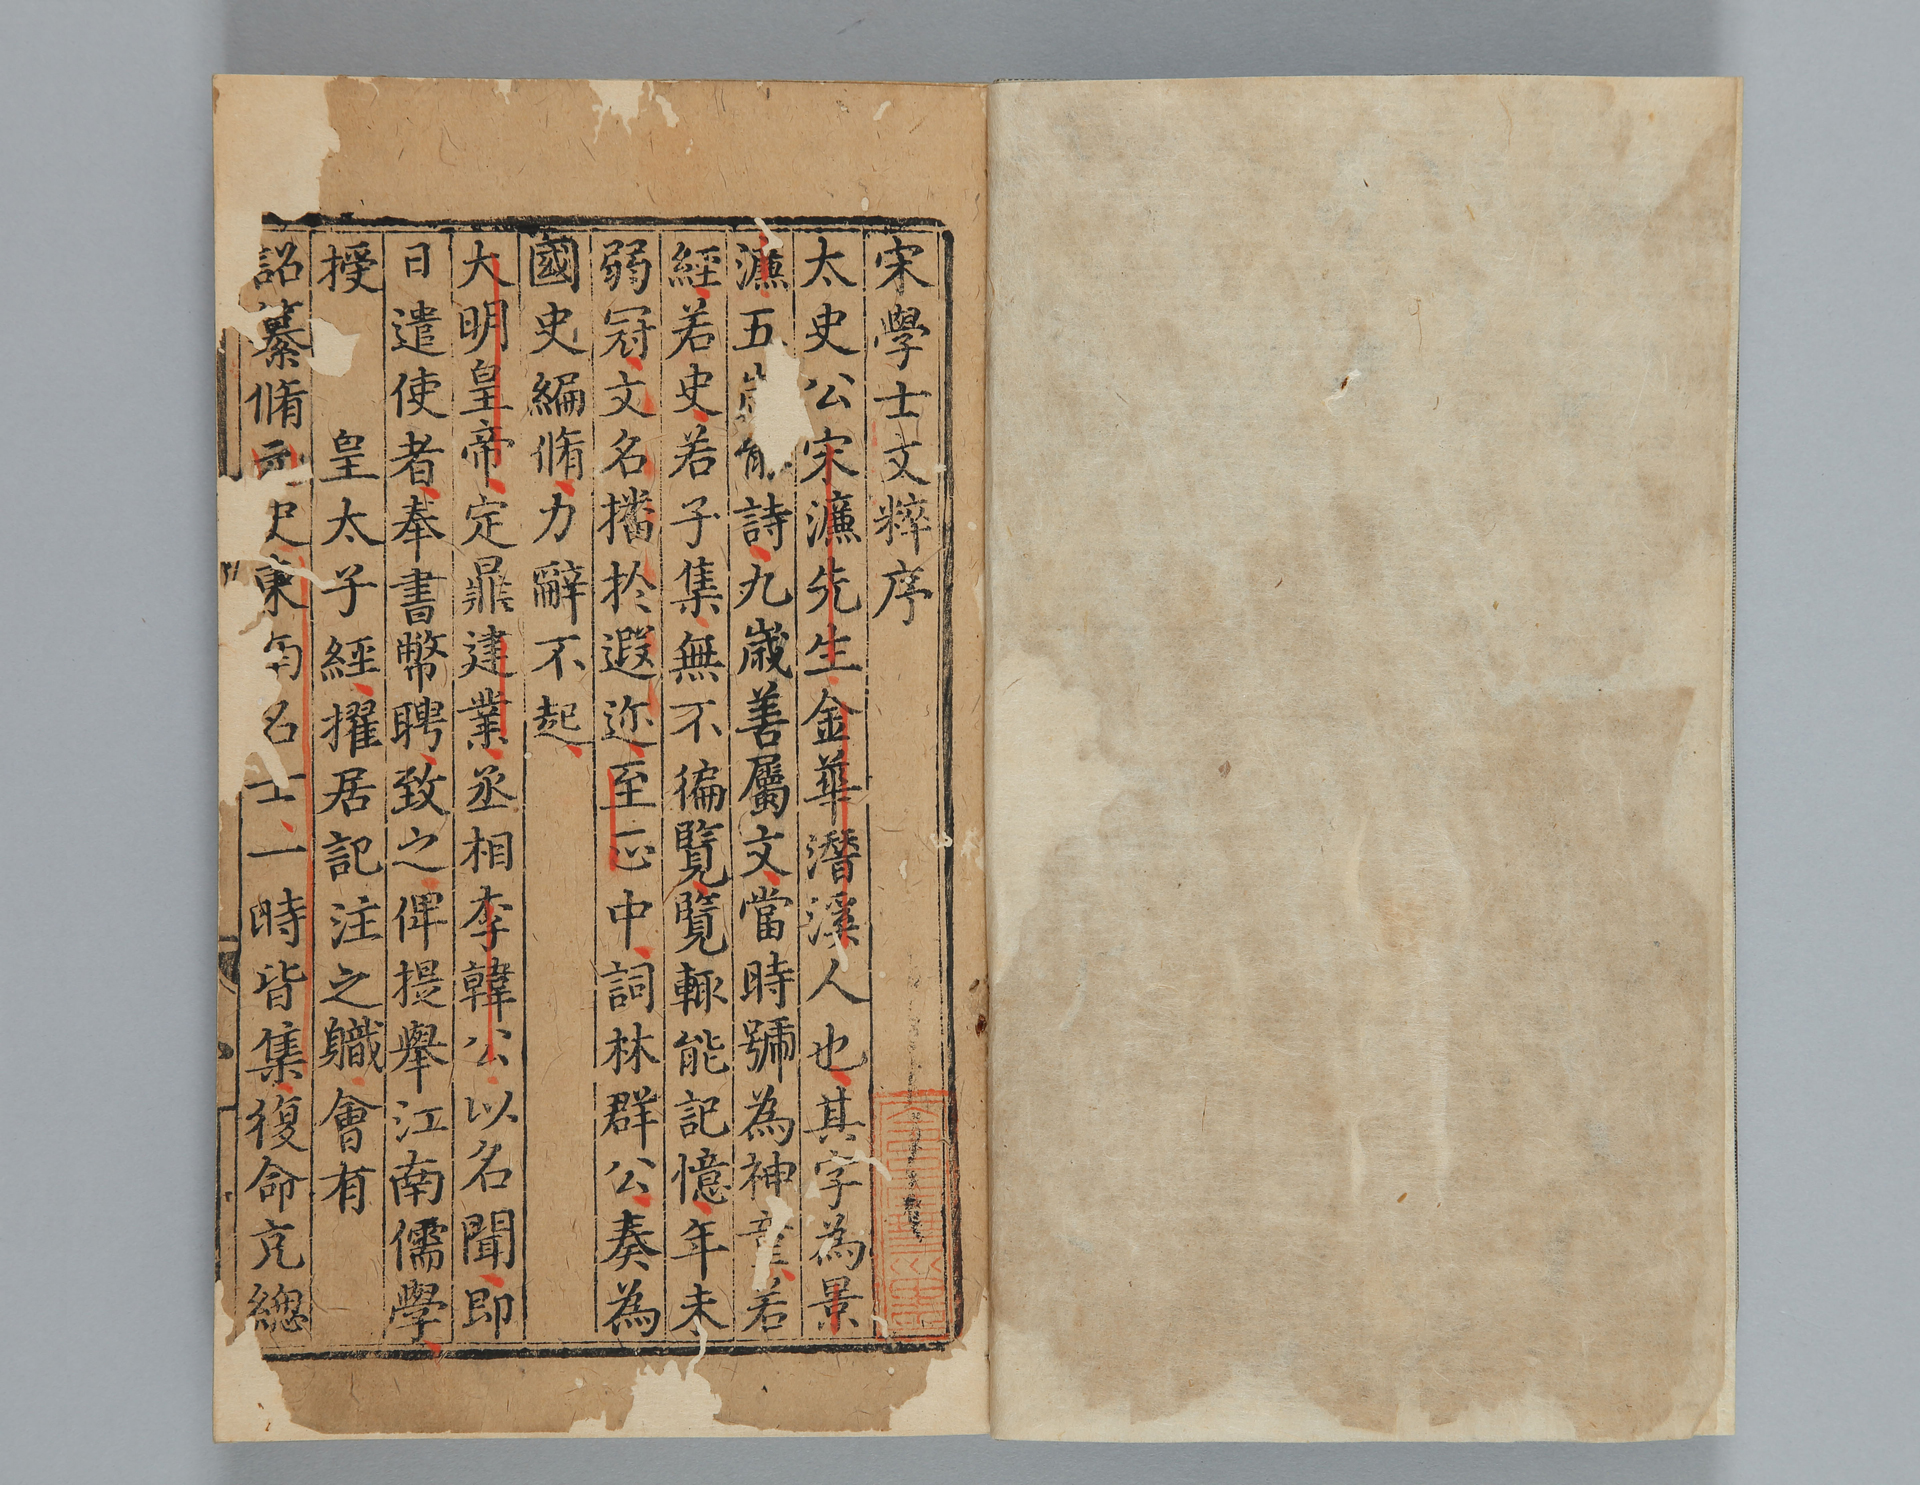 宋學士文粹序
太史公宋濂先生金華潛溪人也其字為景
濂五歲能詩九歲善屬文當時號為神童若
經若史若子集無不徧覽覽輒能記憶年未
弱冠文名播於遐迩至正中詞林群公奏為
國史編脩力辭不起
大明皇帝定鼎建業丞相李韓公以名聞即
日遣使者奉書幣聘致之俾提舉江南儒學
授 皇太子經擢居記注之職會有
詔纂脩元史東南名士一時皆集復命充總